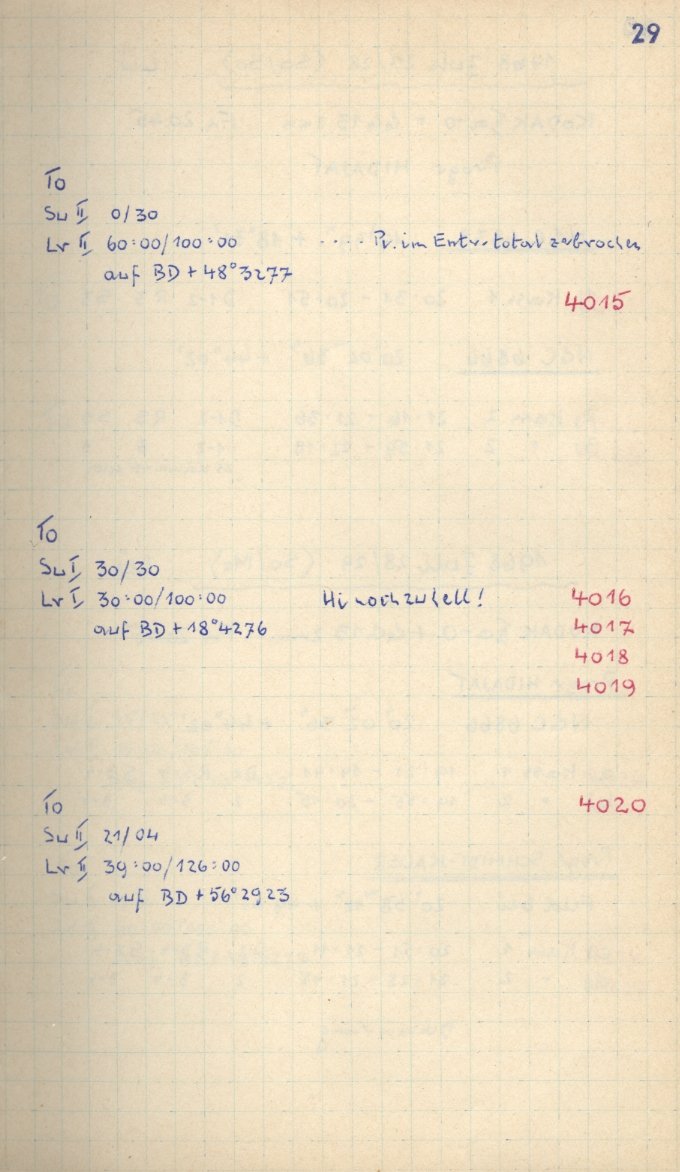 29
To
Su II 0/30
Lv II 60:00/100:00 .... Pl. im Entw. total zebrochen
auf BD + 48°3277
4015
To
Su I 30/30
Lv I 30:00/100:00 Hi noch zu hell! 4016
auf BD + 18°4276 4017
4018
4019
To 4020
Su II 21/04
Lv II 39:00/126:00
auf BD + 56°2923